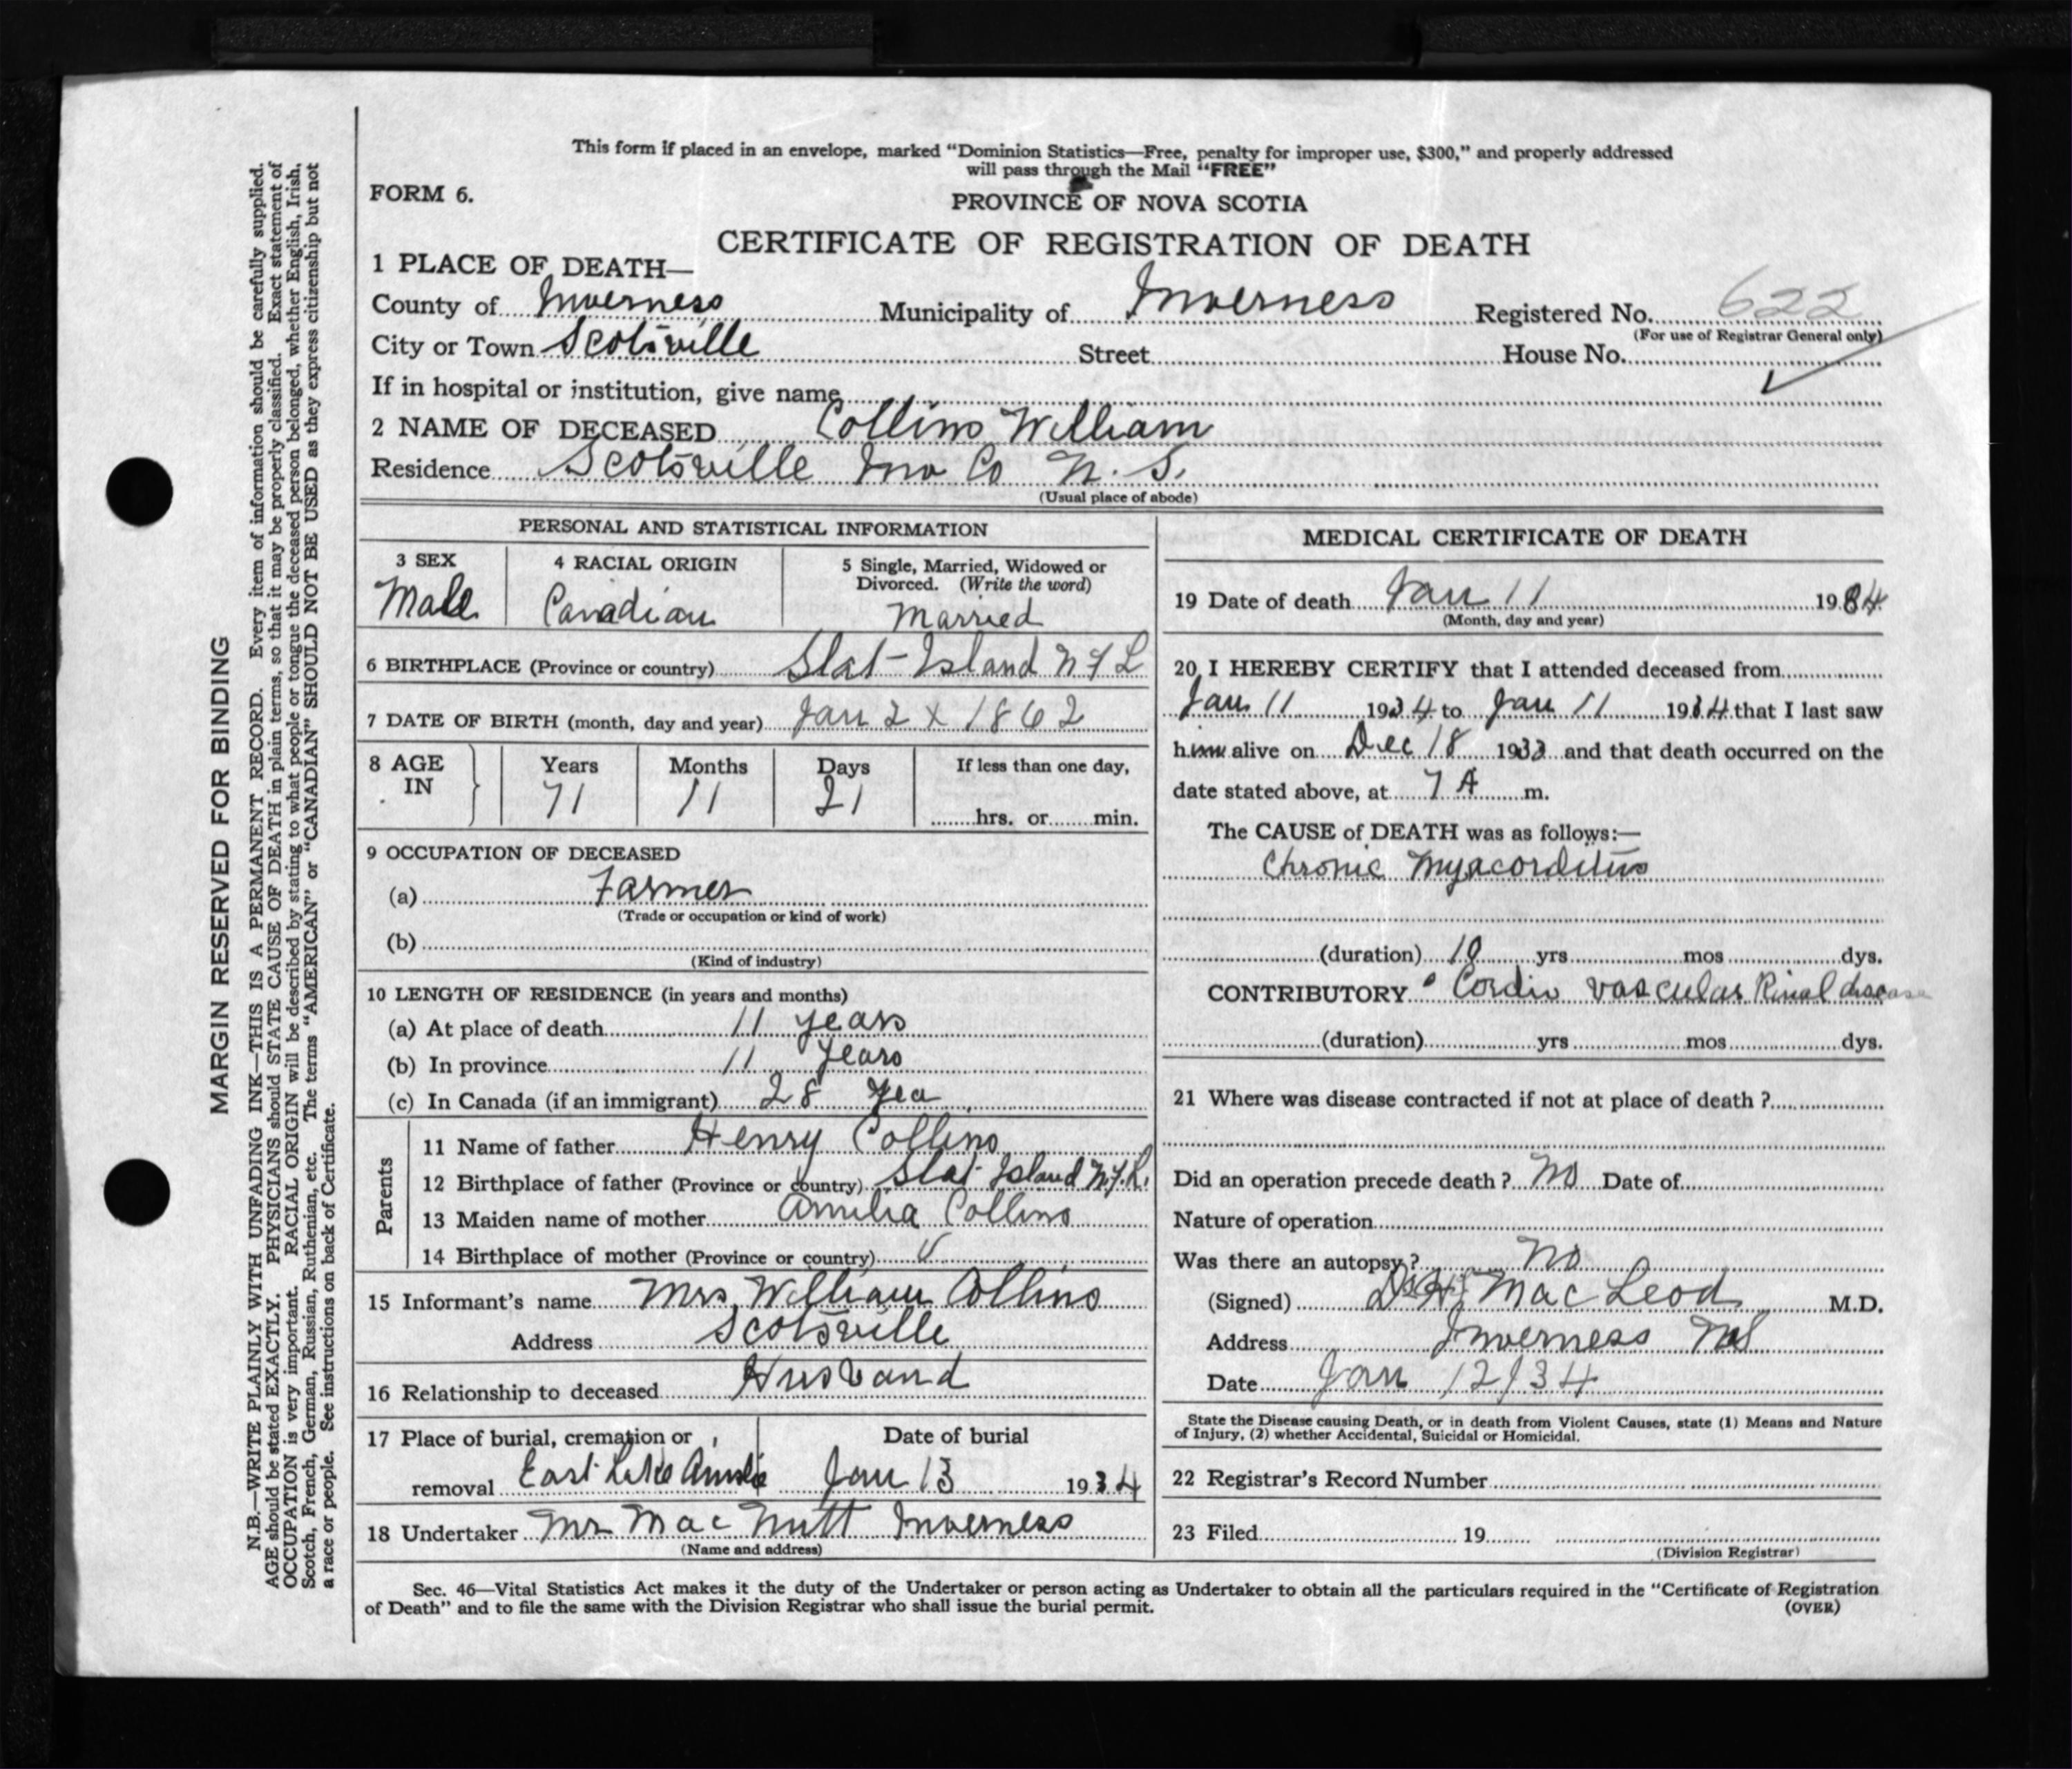 This form if placed in an envelope, marked “Dominion Statistics—Free, penalty for improper use, $300,” and properly addressed
will pass through the Mail “FREE”
FORM 6.
PROVINCE OF NOVA SCOTIA
CERTIFICATE OF REGISTRATION OF DEATH
1 PLACE OF DEATH—
County of Inverness Municipality of Inverness Registered No. 622
(For use of Registrar General only)
City or Town Scotsville Street House No.
If in hospital or institution, give name
2 NAME OF DECEASED Collins William
Residence Scotsville Inv Co N. S.
(Usual place of abode)
PERSONAL AND STATISTICAL INFORMATION
3 SEX 4 RACIAL ORIGIN 5 Single, Married, Widowed or
Divorced. (Write the word)
Male Canadian Married
6 BIRTHPLACE (Province or country) Flat Island NFL
7 DATE OF BIRTH (month, day and year) Jan 2 1862
8 AGE IN Years Months Days If less than one day,
71 11 21 hrs. or min.
9 OCCUPATION OF DECEASED
(a) Farmer
(Trade or occupation or kind of work)
(b)
(Kind of industry)
10 LENGTH OF RESIDENCE (in years and months)
(a) At place of death 11 years
(b) In province 11 years
(c) In Canada (if an immigrant) 28 Yea
Parents
11 Name of father Henry Collins
12 Birthplace of father (Province or country) Flat Island N.F.L.
13 Maiden name of mother Amilia Collins
14 Birthplace of mother (Province or country)
15 Informant's name Mrs William Collins
Address Scotsville
16 Relationship to deceased Husband
17 Place of burial, cremation or Date of burial
removal East Lake Ainslie Jan 13 1934
18 Undertaker Mr MacNutt Inverness
(Name and address)
MEDICAL CERTIFICATE OF DEATH
19 Date of death Jan 11 1934
(Month, day and year)
20 I HEREBY CERTIFY that I attended deceased from
Jan 11 1934 to Jan 11 1934 that I last saw
him alive on Dec 18 1933 and that death occurred on the
date stated above, at 7 A m.
The CAUSE of DEATH was as follows:—
Chronic Myacorditus
(duration) 10 yrs mos dys.
CONTRIBUTORY Cordio vascular Rinal disease
(duration) yrs mos dys.
21 Where was disease contracted if not at place of death ?
Did an operation precede death ? No Date of
Nature of operation
Was there an autopsy? No
(Signed) MacLeod M.D.
Address Inverness NS
Date Jan 12/34
State the Disease causing Death, or in death from Violent Causes, state (1) Means and Nature
of Injury, (2) whether Accidental, Suicidal or Homicidal.
22 Registrar's Record Number
23 Filed 19
(Division Registrar)
Sec. 46—Vital Statistics Act makes it the duty of the Undertaker or person acting as Undertaker to obtain all the particulars required in the “Certificate of Registration
of Death” and to file the same with the Division Registrar who shall issue the burial permit.
(OVER)
MARGIN RESERVED FOR BINDING
N.B.—WRITE PLAINLY WITH UNFADING INK—THIS IS A PERMANENT RECORD. Every item of information should be carefully supplied.
AGE should be stated EXACTLY. PHYSICIANS should STATE CAUSE OF DEATH in plain terms, so that it may be properly classified. Exact statement of
OCCUPATION is very important. RACIAL ORIGIN will be described by stating to what people or tongue the deceased person belonged, whether English, Irish,
Scotch, French, German, Russian, Ruthenian, etc. The terms “AMERICAN” or “CANADIAN” SHOULD NOT BE USED as they express citizenship but not
a race or people. See instructions on back of Certificate.